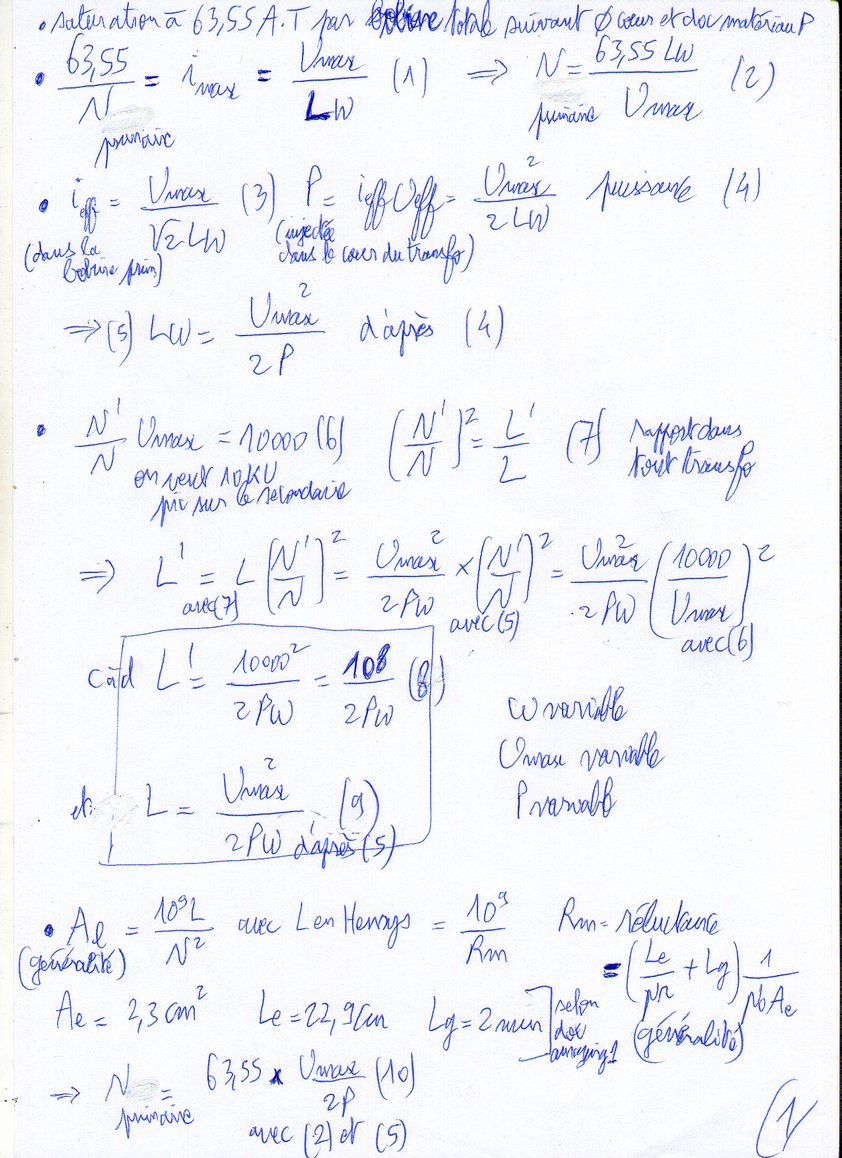 • saturation à 63,55 A.T par bobine totale suivant φ cœur et doc matériau P
• 63,55/N primaire = i max = Umax/LW (1) ⇒ N primaire = 63,55 LW/Umax (2)
• i eff = Umax/√2 LW (3) P = ieff Ueff = Umax²/2LW puissance (4)
(dans la bobine prim) (injectée dans le cœur du transfo)
⇒ (5) LW = Umax²/2P d'après (4)
• N'/N Umax = 10000 (6) (N'/N)² = L'/L (7) rapport dans tout transfo
on veut 10KV pic sur le secondaire
⇒ L' = L (N'/N)² = Umax²/2PW × (N'/N)² = Umax²/2PW (10000/Umax)²
avec (7) avec (5) avec (6)
càd L' = 10000²/2PW = 10⁸/2PW (8)
W variable
Umax variable
P variable
et L = Umax²/2PW (9)
d'après (5)
• Al = 10⁹L/N² avec L en Henrys = 10⁹/Rm Rm = réluctance
(généralité) = (Le/μr + Lg) 1/μ0Ae
Ae = 2,3 cm² Le = 22,9 cm Lg = 2 mm selon doc (généralité)
⇒ N primaire = 63,55 × Umax/2P (10)
avec (2) et (5)
(1